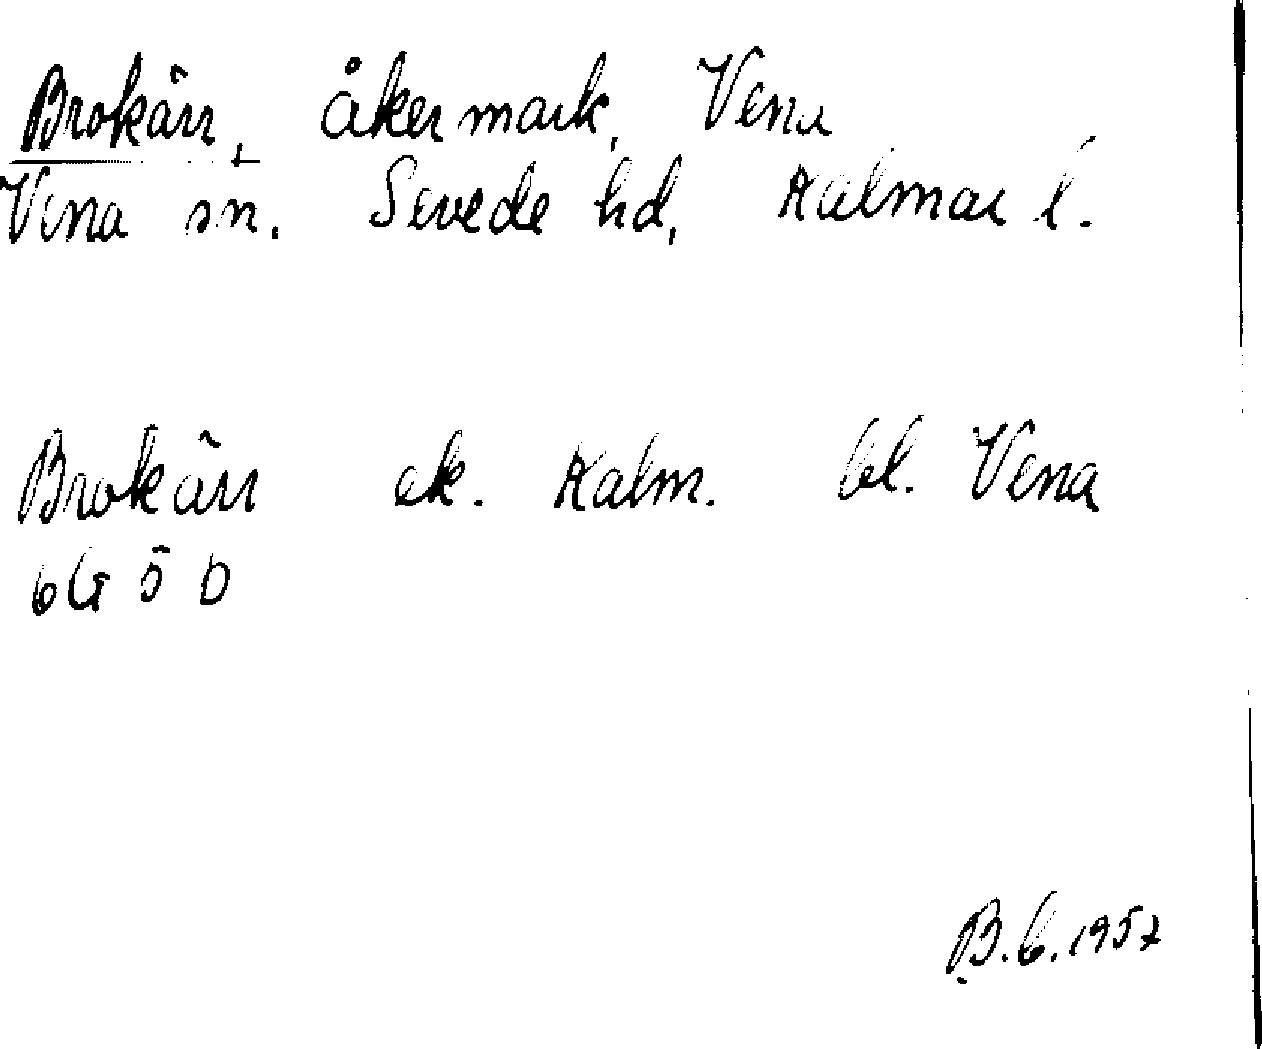 Brokärr, åkermark, Vena
Vena sn. Sevede hd, Kalmar l.
Brokärr ek. Kalm. bl. Vena
6G 5 b
B.G. 1957